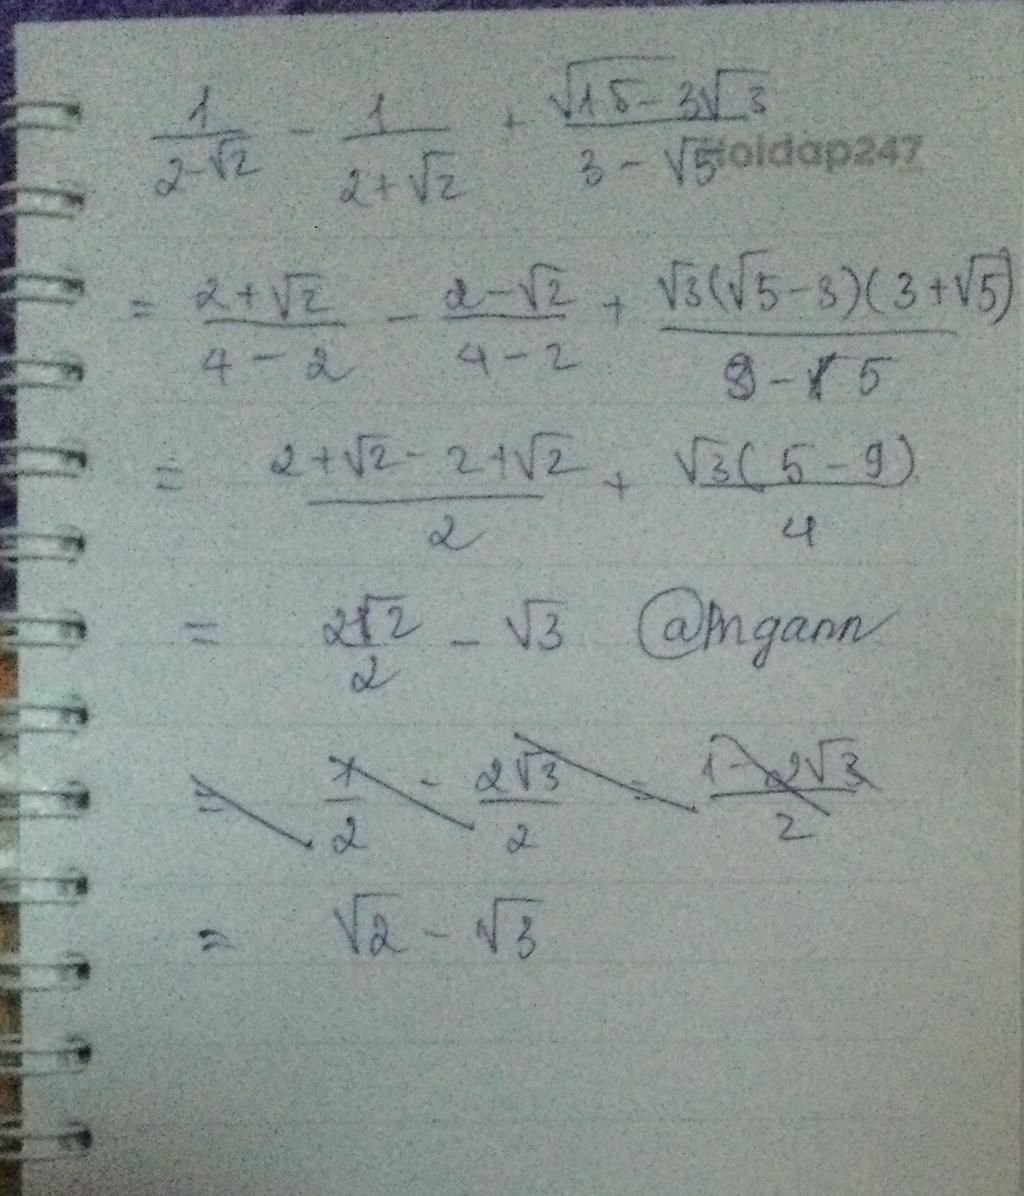 1/(2-√2) - 1/(2+√2) + (√15 - 3√3)/(3-√5)
Hoidap247
= (2+√2)/(4-2) - (2-√2)/(4-2) + √3(√5-3)(3+√5)/(9-5)
= (2+√2-2+√2)/2 + √3(5-9)/4
= 2√2/2 - √3 @mgann
= 1/2 - 2√3/2 = (1-2√3)/2
= √2 - √3